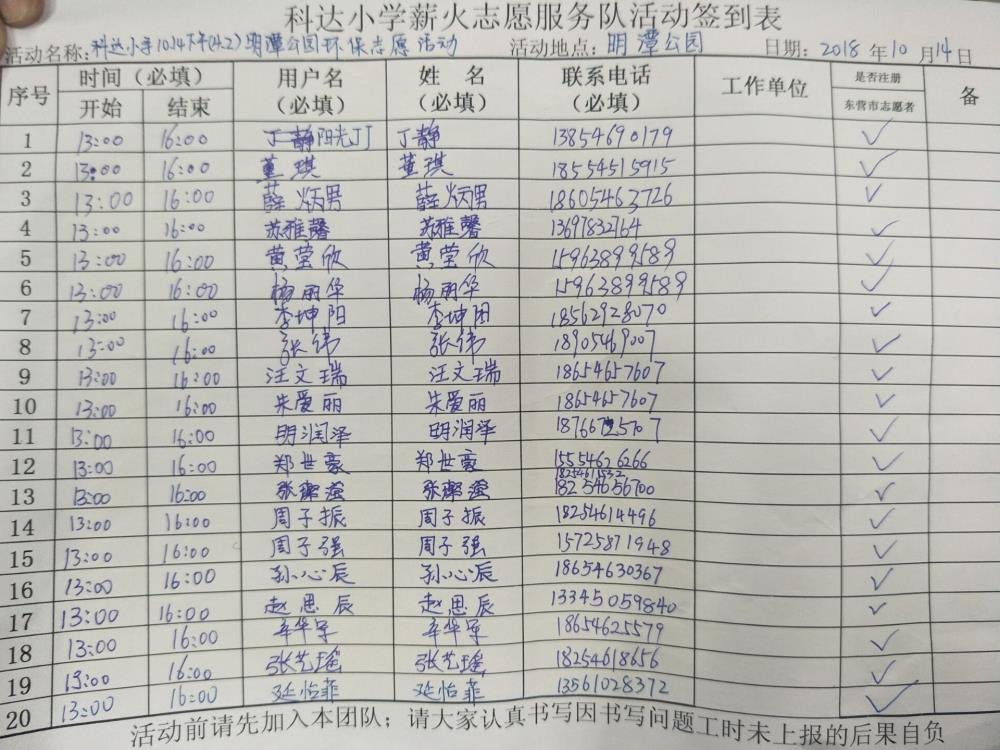 科达小学薪火志愿服务队活动签到表
活动名称: 科达小学10.14下午(4.2)明潭公园环保志愿活动 活动地点: 明潭公园 日期: 2018年10月14日
序号 时间（必填） 用户名（必填） 姓 名（必填） 联系电话（必填） 工作单位 是否注册 备
开始 结束 东营市志愿者
1 13:00 16:00 阳光JJ 丁静 13854690179 ✓
2 13:00 16:00 董琪 董琪 18554515915 ✓
3 13:00 16:00 薛炳男 薛炳男 18605463726 ✓
4 13:00 16:00 苏雅馨 苏雅馨 13697832764 ✓
5 13:00 16:00 黄莹欣 黄莹欣 15963899589 ✓
6 13:00 16:00 杨丽华 杨丽华 15963899589 ✓
7 13:00 16:00 李坤阳 李坤阳 18562928070 ✓
8 13:00 16:00 张伟 张伟 18905469007 ✓
9 13:00 16:00 汪文瑞 汪文瑞 18654657607 ✓
10 13:00 16:00 朱爱丽 朱爱丽 18654657607 ✓
11 13:00 16:00 明润泽 明润泽 ✓
12 13:00 16:00 郑世豪 郑世豪 15554626266 ✓
18254611532
13 13:00 16:00 张 张 18254656700 ✓
14 13:00 16:00 周子振 周子振 18254614496 ✓
15 13:00 16:00 周子强 周子强 15725871948 ✓
16 13:00 16:00 孙心辰 孙心辰 18654630367 ✓
17 13:00 16:00 赵思辰 赵思辰 13345059840 ✓
18 13:00 16:00 辛华宇 辛华宇 18654625579 ✓
19 13:00 16:00 张艺瑶 张艺瑶 18254618656 ✓
20 13:00 16:00 延怡菲 延怡菲 13561028372 ✓
活动前请先加入本团队；请大家认真书写因书写问题工时未上报的后果自负